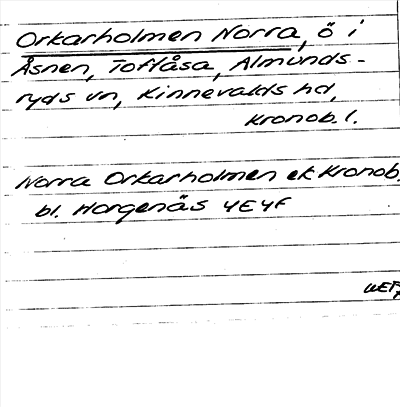 Orkarholmen Norra, ö i
Åsnen, Toftåsa, Almunds-
ryds sn, Kinnevalds hd,
Kronob. l.
Norra Orkarholmen ek Kronob.
bl. Horgenäs 4E4f